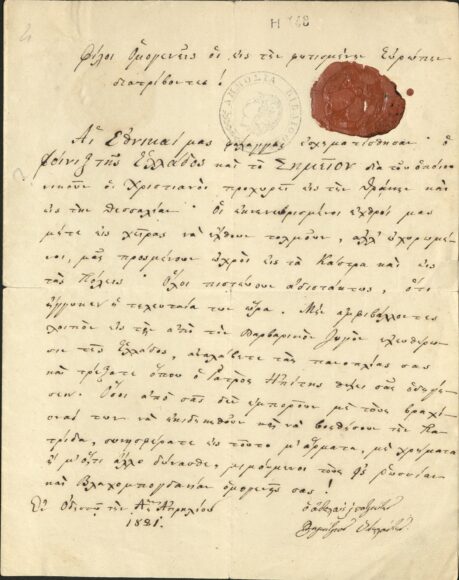 Η 188
Φίλοι Ὁμογενεῖς οἱ εἰς τὴν φωτισμένην Εὐρώπην
διατρίβοντες!
Αἱ Ἐθνικαί μας φάλαγγες ἐσχηματίσθησαν· ὁ
Φοίνιξ τῆς Ἑλλάδος καὶ τὸ Σημεῖον διὰ τοῦ ὁποίου
νικοῦν οἱ Χριστιανοὶ προχωρεῖ εἰς τὴν Θράκην καὶ
εἰς τὴν Θεσσαλίαν· Οἱ ἐκνενευρισμένοι ἐχθροί μας
μήτε εἰς χεῖρας νὰ ἔλθουν τολμοῦν, ἀλλ' ὀχυρωμέ
νοι, μᾶς προσμένουν ὠχροὶ εἰς τὰ Κάστρα καὶ εἰς
τὰς Πόλεις· Ὅλοι πιστεύουν ἀδιστάκτως, ὅτι
ἔφθασεν ἡ τελευταία των ὥρα. Μὴν ἀμφιβάλλοντες
λοιπὸν εἰς τὴν ἀπὸ τὸν Βαρβαρικὸν Ζυγὸν ἐλευθέρω
σιν τῆς Ἑλλάδος, ἀναλάβετε τὰς πανοπλίας σας
καὶ τρέξατε ὅπου ὁ Ἰατρὸς Ἠπίτης θέλει σᾶς ὁδηγή
σειν. Ὅσοι ἀπὸ σᾶς δὲν ἐμποροῦν μὲ τοὺς βραχί
ονάς των νὰ ἐκδικηθοῦν καὶ νὰ βοηθήσουν τὴν Πα
τρίδα, συνεισφέρατε εἰς τοῦτο μ' ἄρματα, μὲ χρήματα
ἢ μ' ὅ,τι ἄλλο δύνασθε, μιμούμενοι τοὺς Ῥωσσίαν
καὶ Βλαχομπογδανίαν ὁμογενεῖς σας!
Ἐν Ὀδησσῷ τὴν Ἀπριλλίου
1821.
Δημήτριος